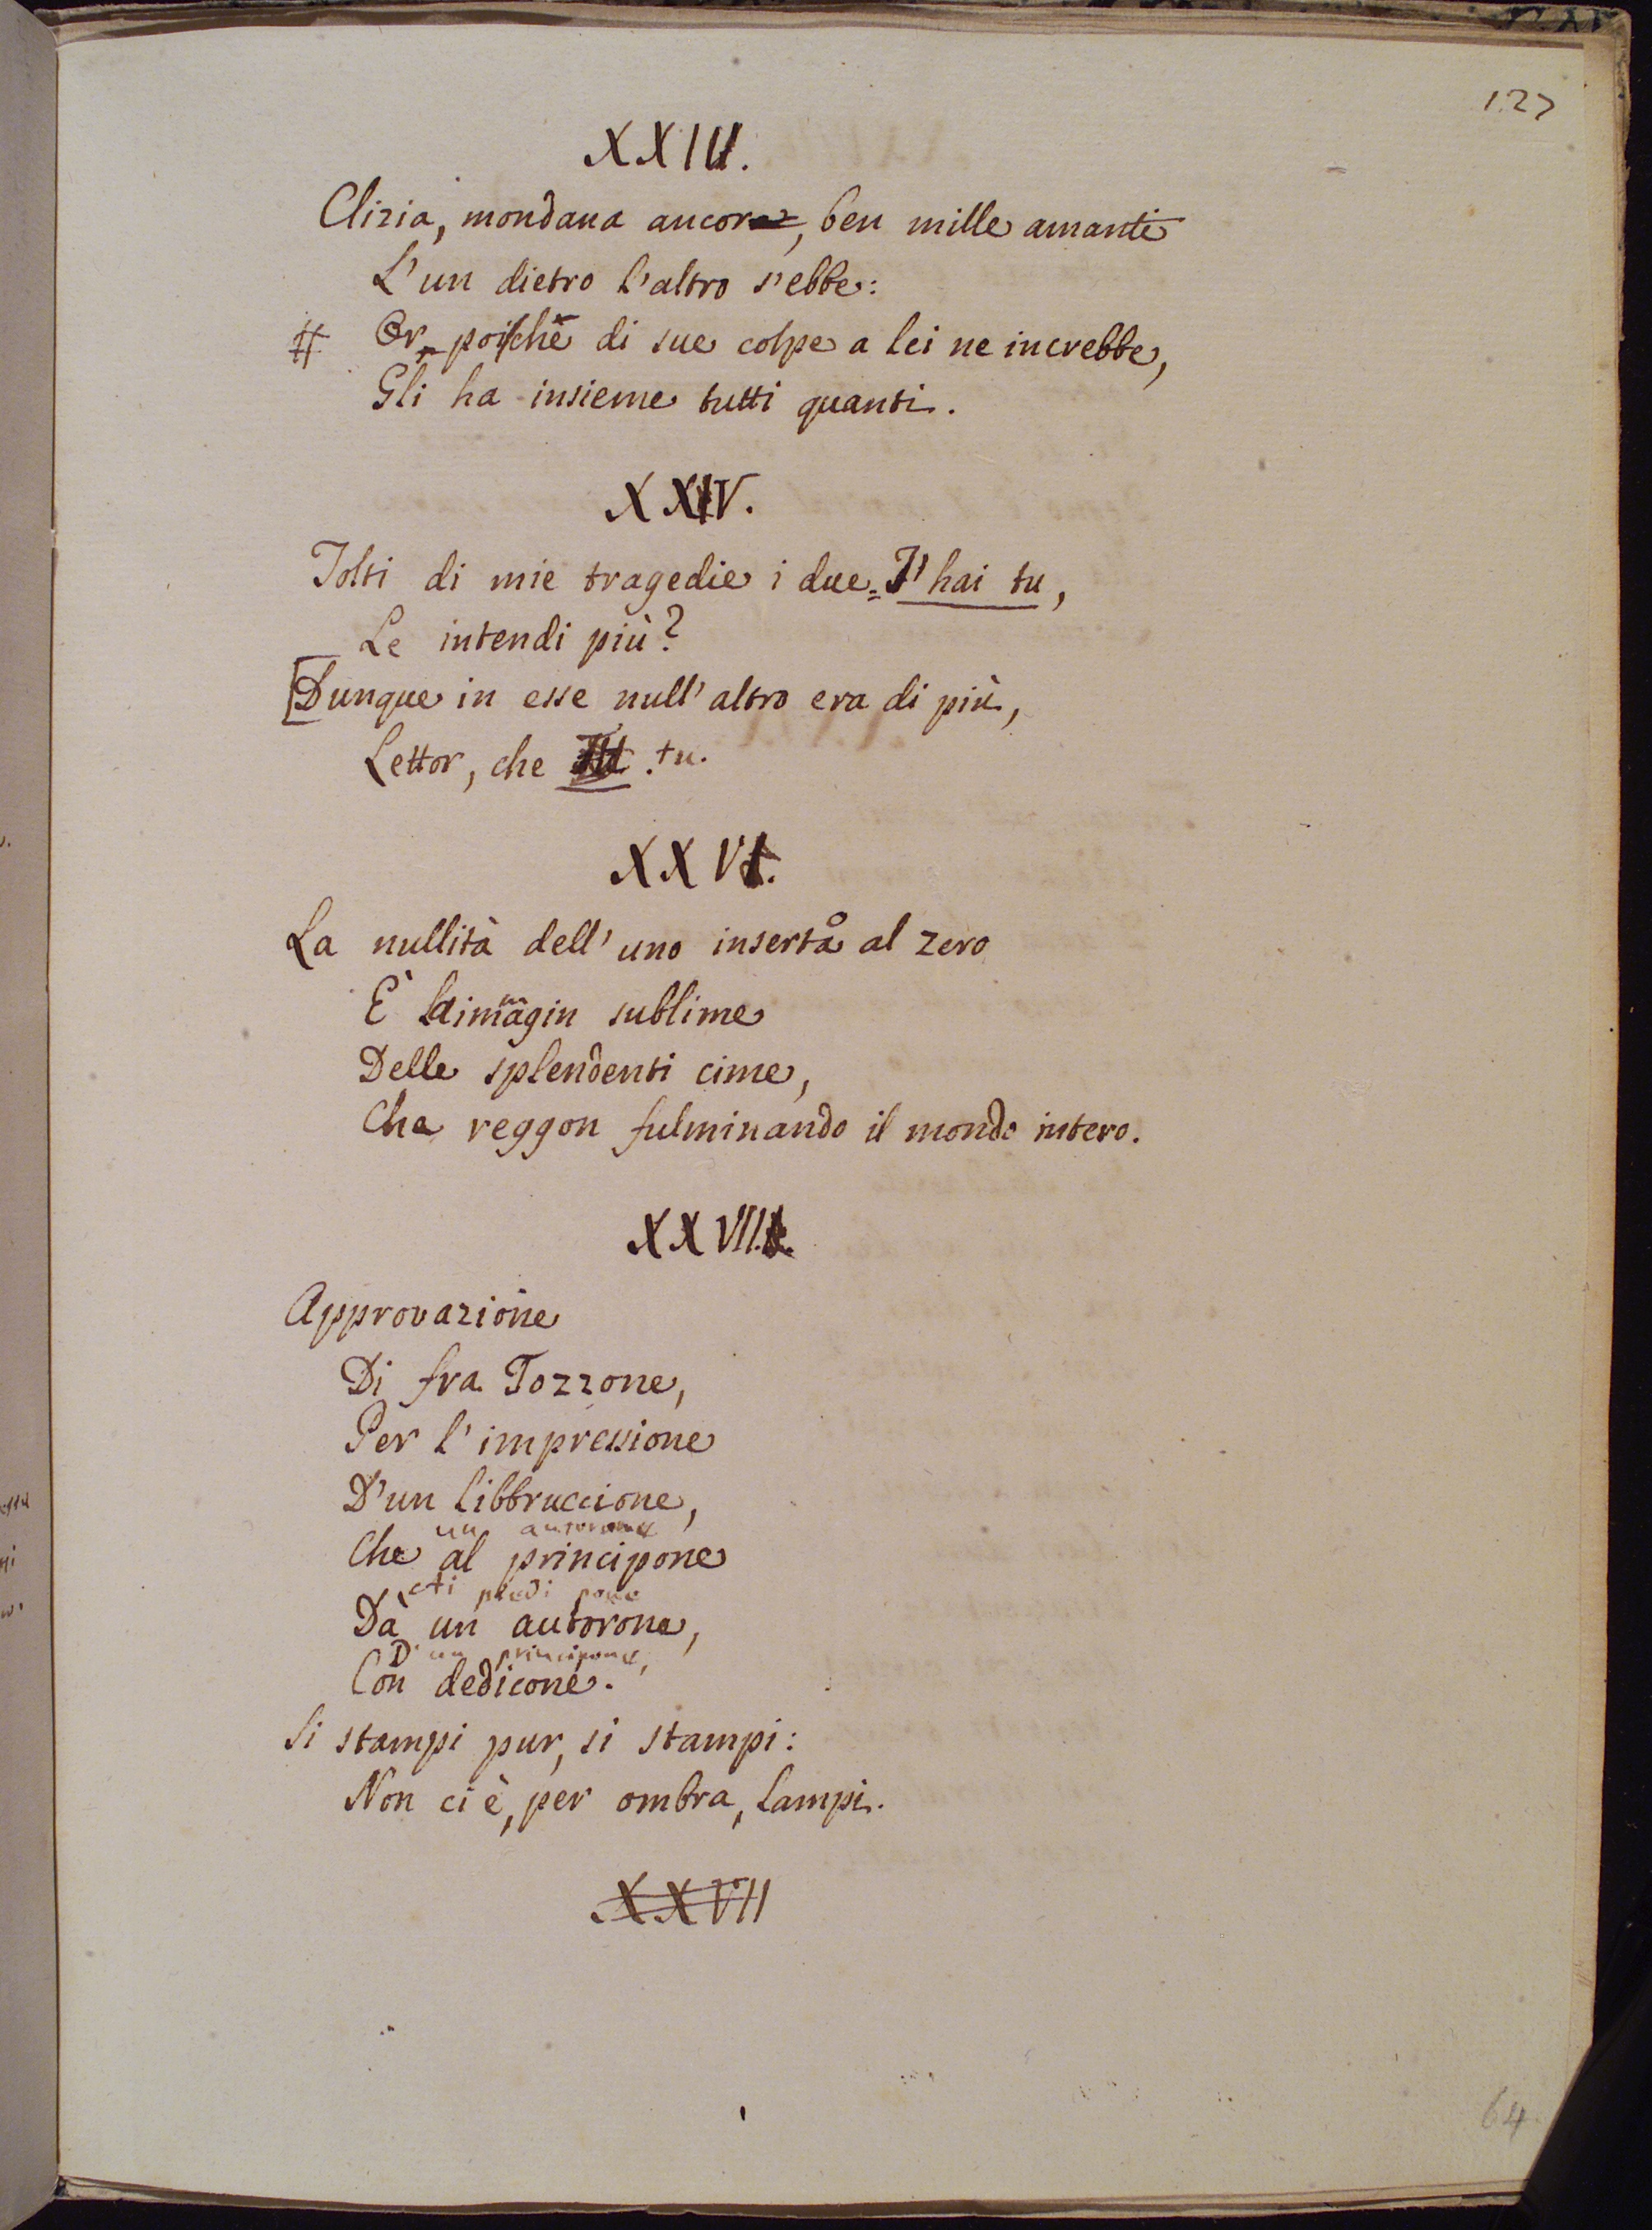 127
XXIII.
Clizia, mondana ancora, ben mille amanti
L'un dietro l'altro s'ebbe:
Or, poichè di sue colpe a lei ne increbbe,
Gli ha insieme tutti quanti.
XXIV.
Tolti di mie tragedie i due = T'hai tu,
Le intendi più?
Dunque in esse null'altro era di più,
Lettor, che tu.
XXV
La nullità dell'uno inserto al zero
È l'immagin sublime
Delle splendenti cime,
Che reggon fulminando il mondo intero.
XXVII.
Approvazione
Di fra Tozzone,
Per l'impressione
D'un libbruccione,
un autorone
Che al principone
piedi pone
Dà un autorone,
D'un principone,
Con dedicone.
Si stampi pur, si stampi:
Non ci è, per ombra, lampi.
XXVII
64